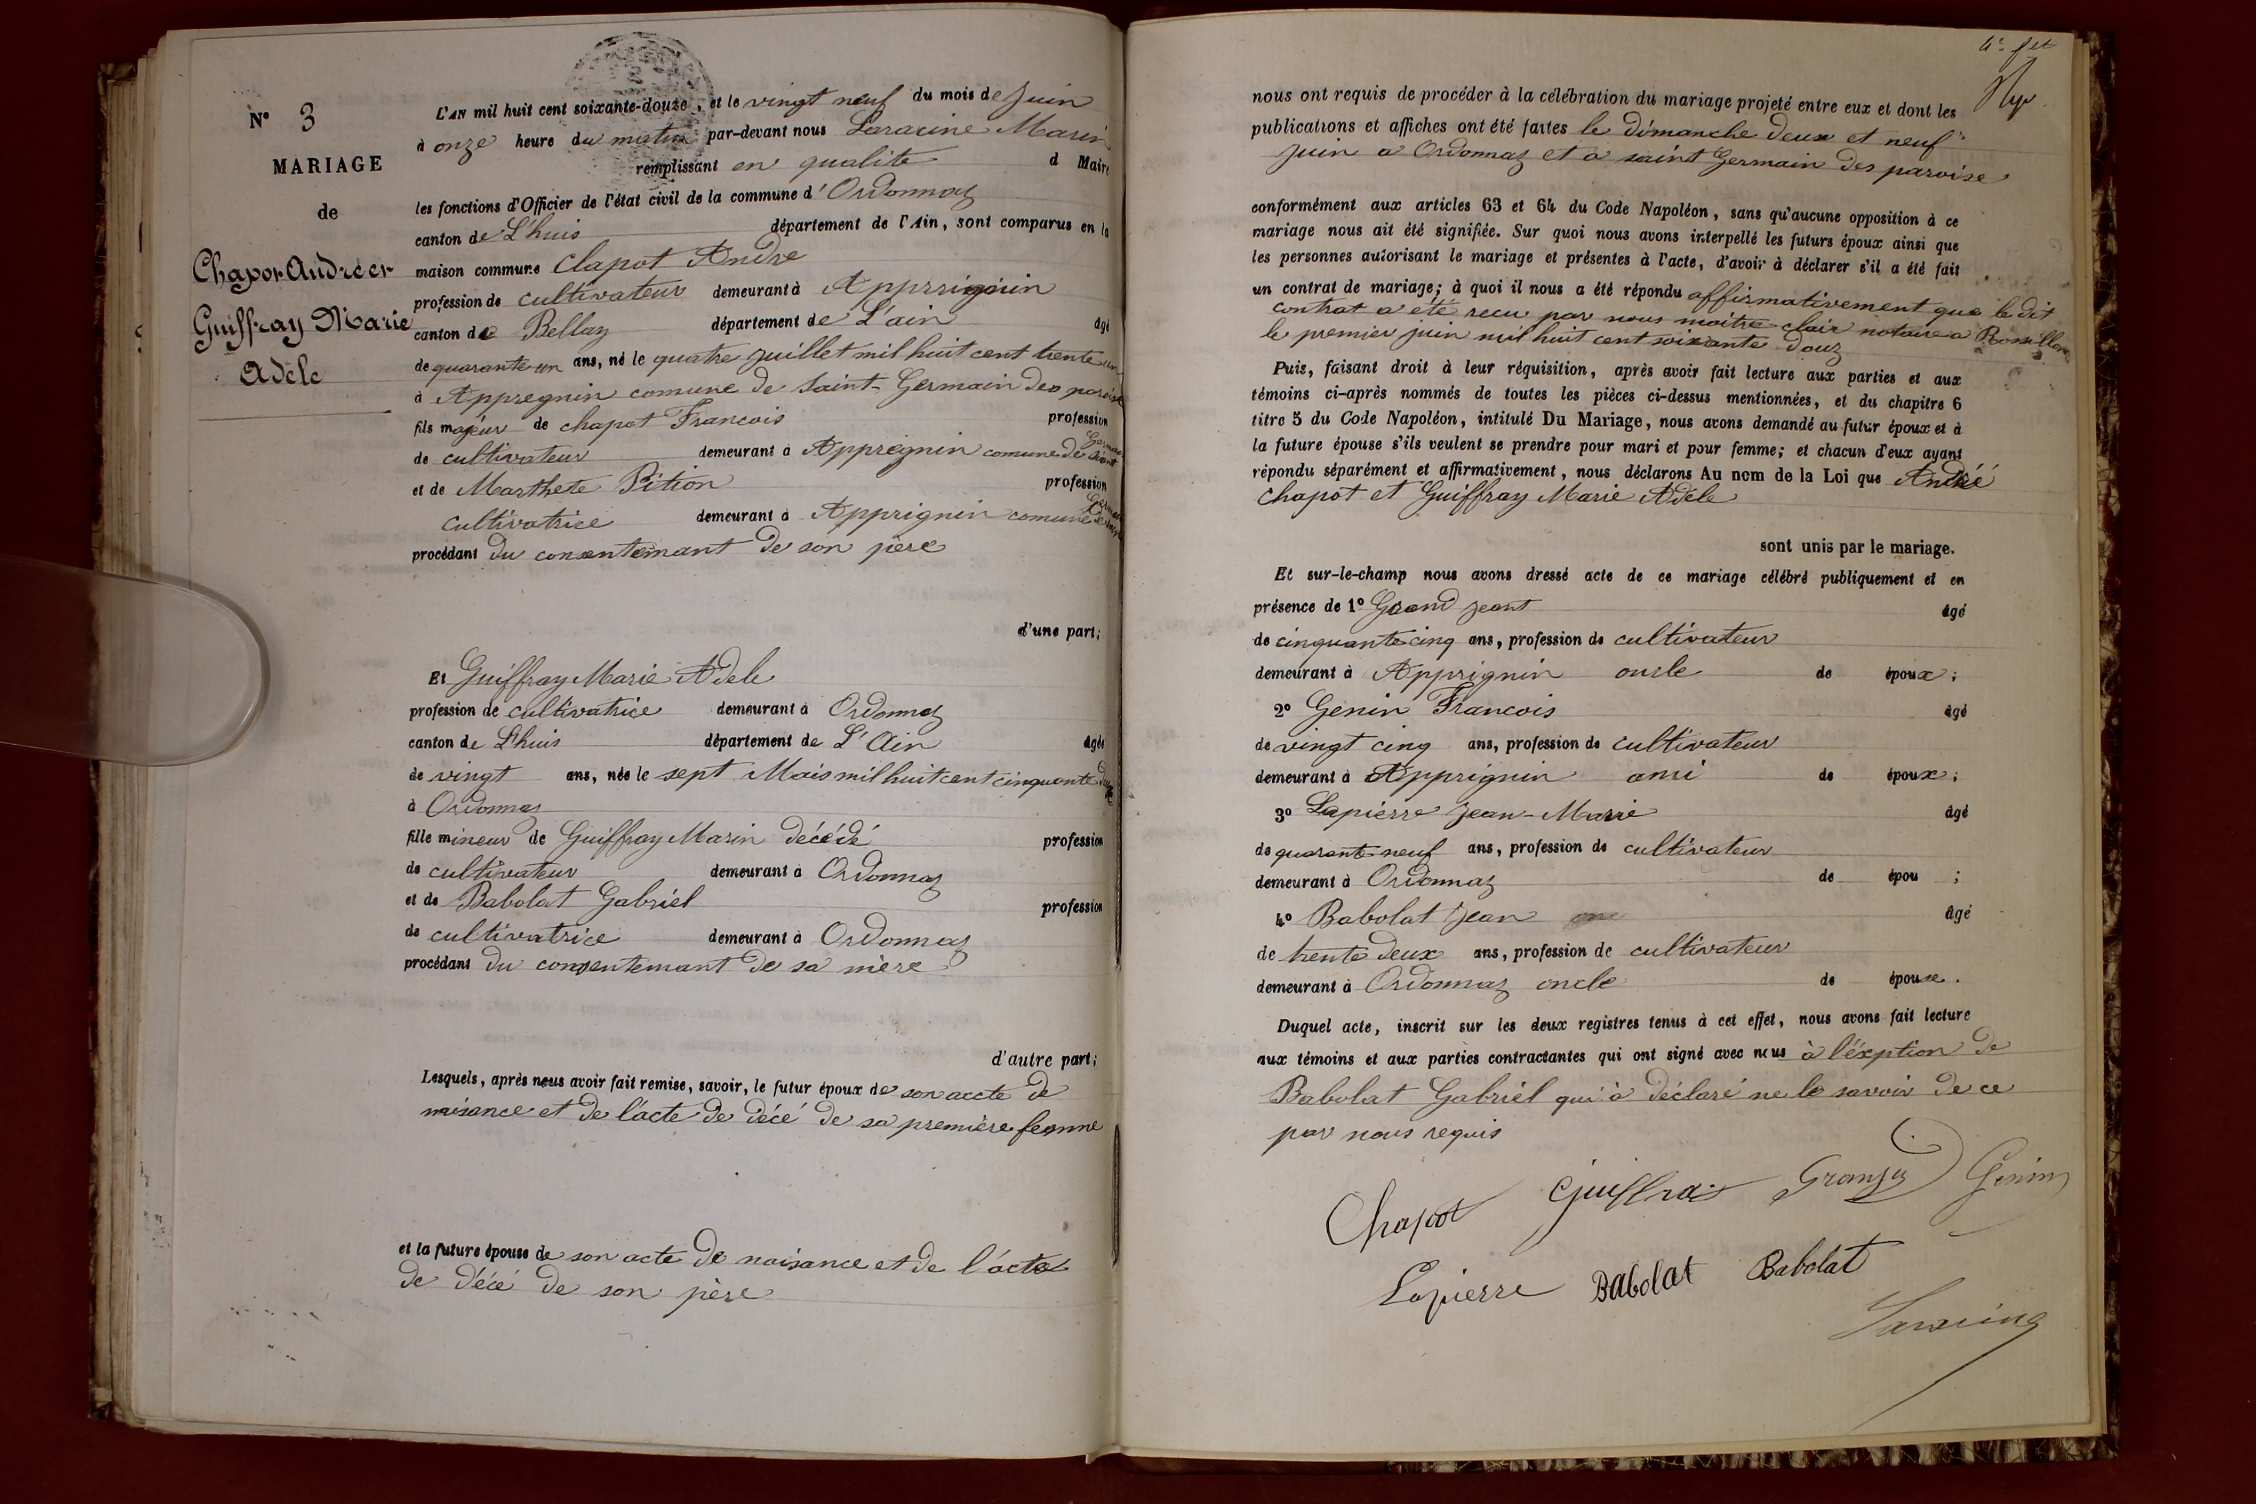 N° 3
MARIAGE
de
Chapot André et
Guiffray Marie
Adèle
L'AN mil huit cent soixante-douze, et le vingt neuf du mois de Juin
à onze heure du matin par-devant nous Laracine Marin
remplissant en qualite d Maire
les fonctions d'Officier de l'état civil de la commune d'Ordonnaz
canton de L'huis département de l'Ain, sont comparus en la
maison commune Clapot Andre
profession de cultivateur demeurant à Apprrignin
canton de Bellay département de L'ain âgé
de quarante un ans, né le quatre juillet mil huit cent trente un
à Appregnin comune de Saint-Germain des paroise
fils majeur de chapot Francois profession
de cultivateur demeurant à Apprégnin comune de Saint Germain
et de Marthete Pition profession
cultivatrice demeurant à Apprignin comune de
procédant du consentemant de son père
d'une part;
Et Guiffray Marie Adele
profession de cultivatrice demeurant à Ordonnaz
canton de L'huis département de L'Ain âgée
de vingt ans, née le sept Mais mil huit cent cinquante
à Ordonnaz
fille mineur de Guiffray Marin décédé profession
de cultivateur demeurant à Ordonnaz
et de Babolat Gabriel profession
de cultivatrice demeurant à Ordonnaz
procédant du consentemant de sa mère
d'autre part;
Lesquels, après nous avoir fait remise, savoir, le futur époux de son accte de
naisance et de l'acte de décé de sa première femme
et la future épouse de son acte de naisance et de l'acte
de décé de son père
4e fet
nous ont requis de procéder à la célébration du mariage projeté entre eux et dont les
publications et affiches ont été faites le dimanche deux et neuf
juin a Ordonnaz et a saint Germain des paroise
conformément aux articles 63 et 64 du Code Napoléon, sans qu'aucune opposition à ce
mariage nous ait été signifiée. Sur quoi nous avons interpellé les futurs époux ainsi que
les personnes autorisant le mariage et présentes à l'acte, d'avoir à déclarer s'il a été fait
un contrat de mariage; à quoi il nous a été répondu affirmativement que le dit
contrat a été recu par nous maitre clair notaire a Rossillon
le premier juin mil huit cent soixante douz
Puis, faisant droit à leur réquisition, après avoir fait lecture aux parties et aux
témoins ci-après nommés de toutes les pièces ci-dessus mentionnées, et du chapitre 6
titre 5 du Code Napoléon, intitulé Du Mariage, nous avons demandé au futur époux et à
la future épouse s'ils veulent se prendre pour mari et pour femme; et chacun d'eux ayant
répondu séparément et affirmativement, nous déclarons Au nom de la Loi que André
Chapot et Guiffray Marie Adèle
sont unis par le mariage.
Et sur-le-champ nous avons dressé acte de ce mariage célébré publiquement et en
présence de 1° Grand jeant âgé
de cinquante cinq ans, profession de cultivateur
demeurant à Apprignin oncle de époux;
2° Genin Francois âgé
de vingt cinq ans, profession de cultivateur
demeurant à Apprignin ami de époux;
3° Lapierre Jean-Marie âgé
de quarante neuf ans, profession de cultivateur
demeurant à Ordonnaz de épou ;
4° Babolat Jean âgé
de trente deux ans, profession de cultivateur
demeurant à Ordonnaz oncle de épouse.
Duquel acte, inscrit sur les deux registres tenus à cet effet, nous avons fait lecture
aux témoins et aux parties contractantes qui ont signé avec nous à l'éxption de
Babolat Gabriel qui à déclaré ne le savoir de ce
par nous requis
Chapot Guiffrai Granjy Génin
Lapierre Babolat Babolat
Laracine